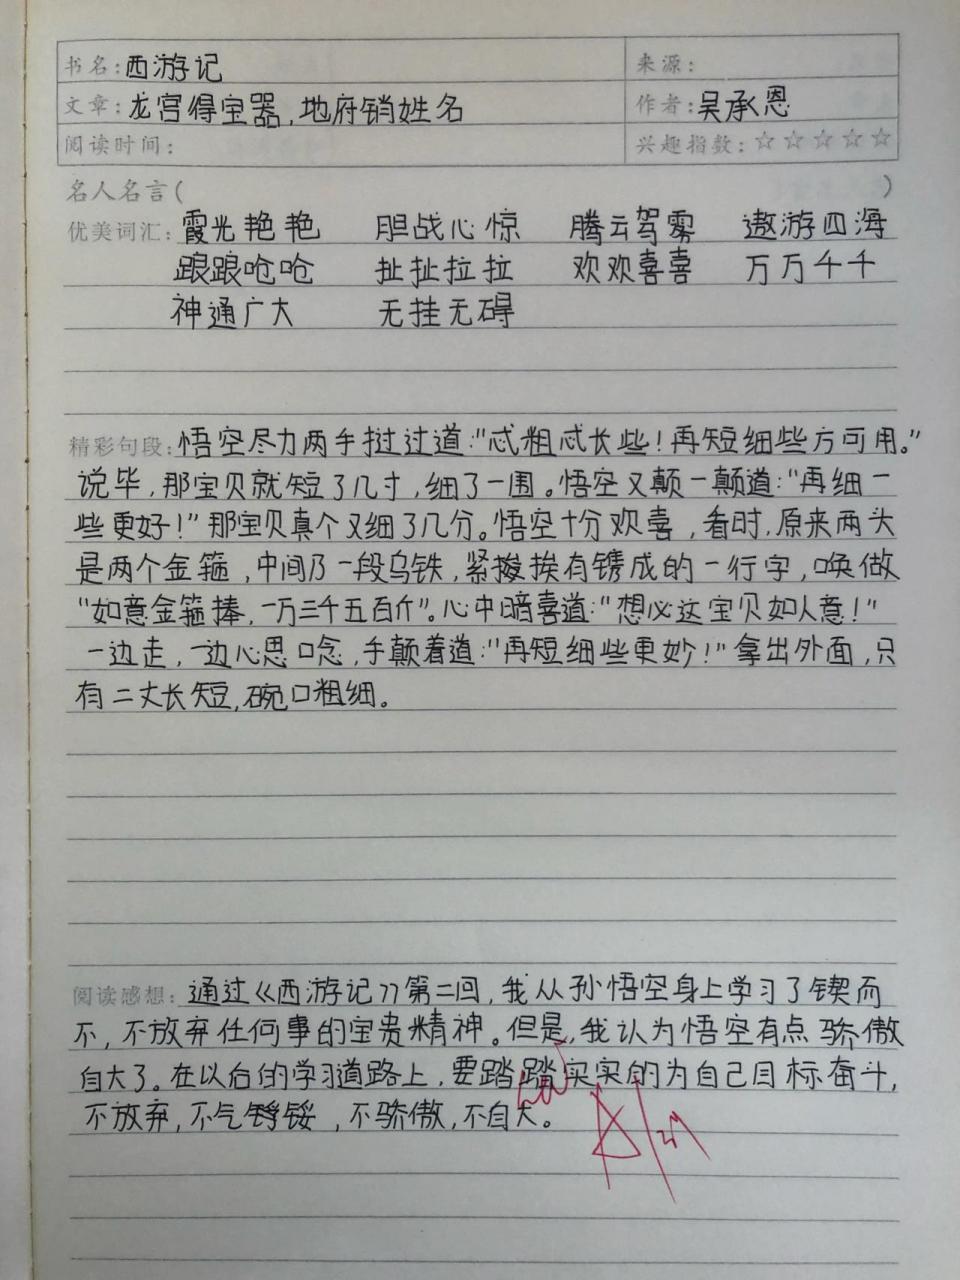 书名：西游记 来源：
文章：龙宫得宝器，地府销姓名 作者：吴承恩
阅读时间： 兴趣指数：☆☆☆☆☆
名人名言（ ）
优美词汇：霞光艳艳 胆战心惊 腾云驾雾 遨游四海
踉踉呛呛 扯扯拉拉 欢欢喜喜 万万千千
神通广大 无挂无碍
精彩句段：悟空尽力两手挝过道："忒粗忒长些！再短细些方可用。"
说毕，那宝贝就短了几寸，细了一围。悟空又颠一颠道："再细一
些更好！"那宝贝真个又细了几分。悟空十分欢喜，看时，原来两头
是两个金箍，中间乃一段乌铁，紧挨有镌成的一行字，唤做
"如意金箍捧，一万三千五百斤"。心中暗喜道："想必这宝贝如人意！"
一边走，一边心思口念，手颠着道："再短细些更妙！"拿出外面，只
有二丈长短，碗口粗细。
阅读感想：通过《西游记》第二回，我从孙悟空身上学习了锲而
不，不放弃任何事的宝贵精神。但是，我认为悟空有点骄傲
自大了。在以后的学习道路上，要踏踏实实的为自己目标奋斗，
不放弃，不气馁，不骄傲，不自大。